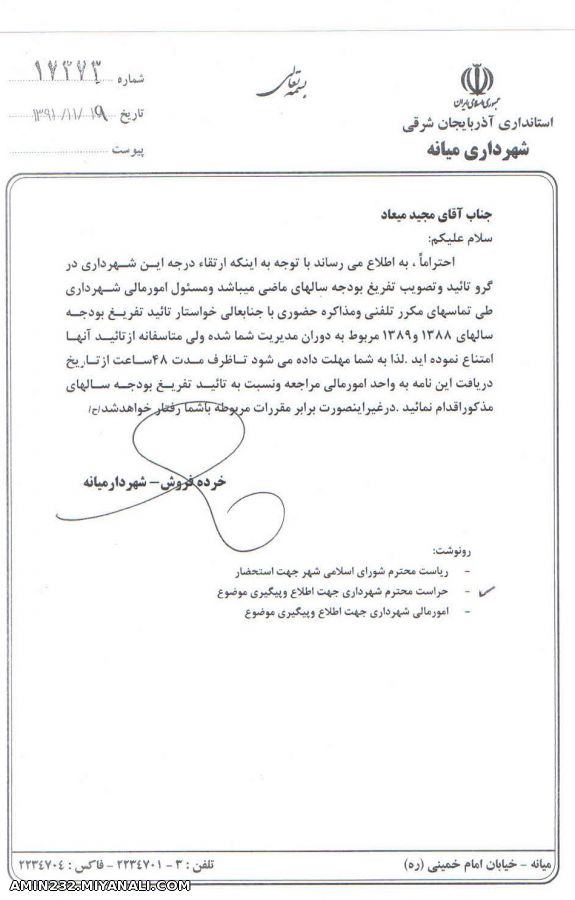 بسمه تعالی
جمهوری اسلامی ایران
استانداری آذربایجان شرقی
شهرداری میانه
شماره ۱۷۲۷۳
تاریخ ۱۳۹۱/۱۱/۱۹
پیوست
جناب آقای مجید میعاد
سلام علیکم:
احتراماً ، به اطلاع می رساند با توجه به اینکه ارتقاء درجه این شهرداری در
گرو تائید وتصویب تفریغ بودجه سالهای ماضی میباشد ومسئول امورمالی شهرداری
طی تماسهای مکرر تلفنی ومذاکره حضوری با جنابعالی خواستار تائید تفریغ بودجه
سالهای ۱۳۸۸ و۱۳۸۹ مربوط به دوران مدیریت شما شده ولی متاسفانه ازتائید آنها
امتناع نموده اید .لذا به شما مهلت داده می شود تاظرف مدت ۴۸ساعت ازتاریخ
دریافت این نامه به واحد امورمالی مراجعه ونسبت به تائید تفریغ بودجه سالهای
مذکوراقدام نمائید .درغیراینصورت برابر مقررات مربوطه باشما رفتار خواهدشد/ح/
خرده فروش– شهردارمیانه
رونوشت:
- ریاست محترم شورای اسلامی شهر جهت استحضار
- حراست محترم شهرداری جهت اطلاع وپیگیری موضوع
- امورمالی شهرداری جهت اطلاع وپیگیری موضوع
میانه - خیابان امام خمینی (ره)
تلفن : ۳ - ۲۲۳۴۷۰۱ - فاکس : ۲۲۳۴۷۰۴
AMIN232.MIYANALI.COM